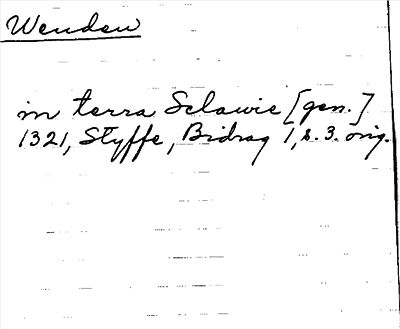 Wenden
in terra Sclauie [gen.]
1321, Styffe, Bidrag 1, s. 3. orig.